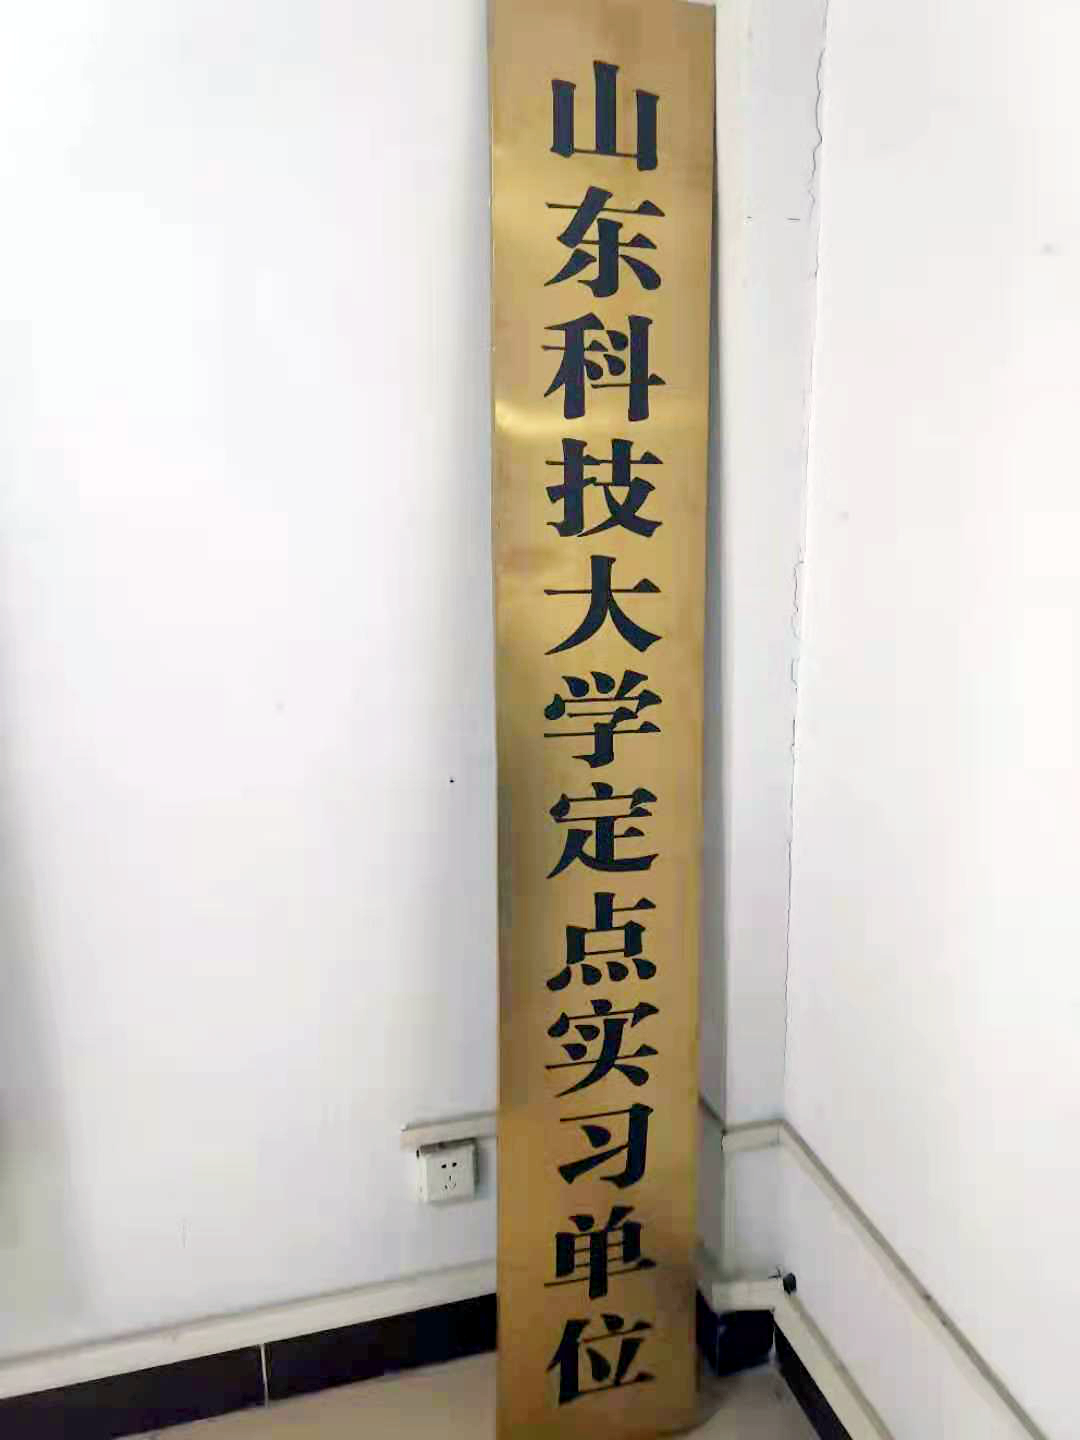 山东科技大学定点实习单位